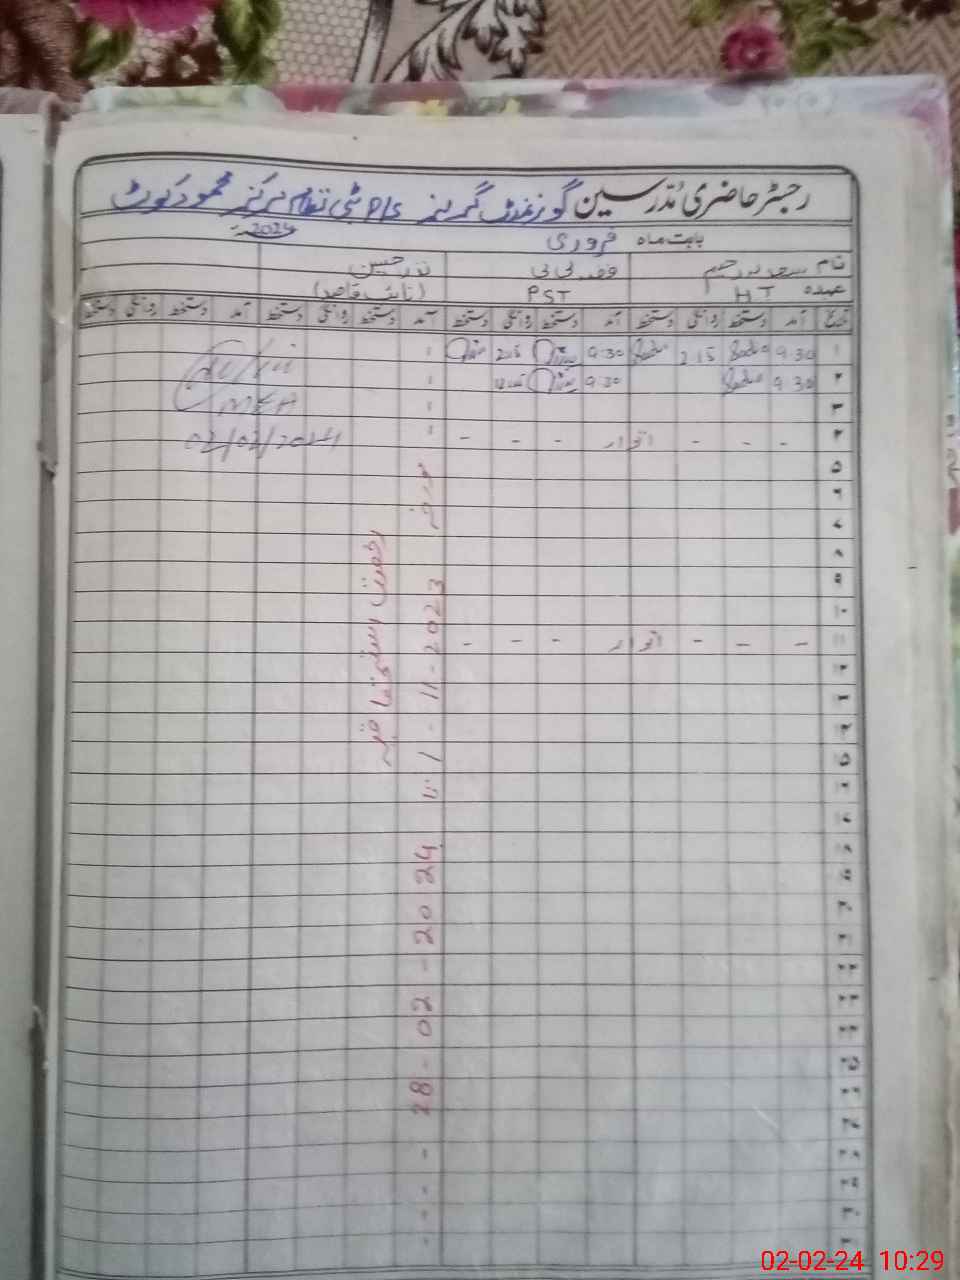 رجسٹر حاضری مُدرسین گورنمنٹ گرلز P/S بستی نظام مرکز محمود کوٹ
بابت ماہ فروری 2024
نام سعدیہ رحیم فضہ بی بی نذر حسین
عہدہ HT PST (نائب قاصد)
تاریخ آمد دستخط روانگی دستخط آمد دستخط روانگی دستخط آمد دستخط روانگی دستخط آمد دستخط روانگی دستخط
۱ 9:30 Sadia 2:15 Sadia 9:30 2:15
۲ 9:30 Sadia 9:30
MEA
۳
۴ - - - اتوار - - -
02/02/2024
۵
۶
۷
۸
۹
۱۰
۱۱ - - - اتوار - - -
۱۲
۱۳
۱۴
۱۵
۱۶
۱۷
۱۸
۱۹
۲۰
۲۱
۲۲
۲۳
۲۴
۲۵
۲۶
۲۷
۲۸
۲۹
۳۰
۳۱
رخصت استحقاقیہ
مورخہ 1-11-2023 تا 28-02-2024
02-02-24 10:29